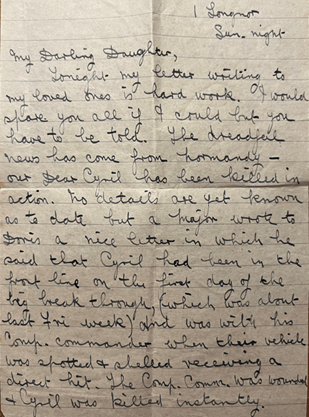 1 Longnor
Sun. night
My Darling Daughter,
Tonight my letter writing to
my loved ones is hard work. I would
spare you all if I could but you
have to be told. The dreadful
news has come from Normandy –
our Dear Cyril has been killed in
action. No details are yet known
as to date but a Major wrote to
Doris a nice letter in which he
said that Cyril had been in the
front line on the first day of the
big break through, (which was about
last Fri week) and was with his
Comp. commander when their vehicle
was spotted & shelled receiving a
direct hit. The Comp. Comm. was wounded
& Cyril was killed instantly.